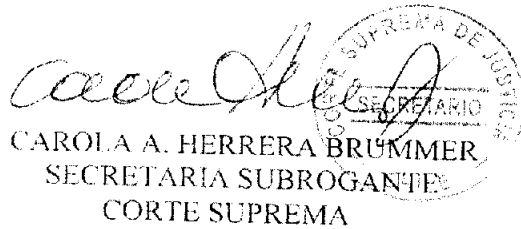 CORTE SUPREMA DE JUSTICIA
SECRETARIO
CAROLA A. HERRERA BRUMMER
SECRETARIA SUBROGANTE
CORTE SUPREMA